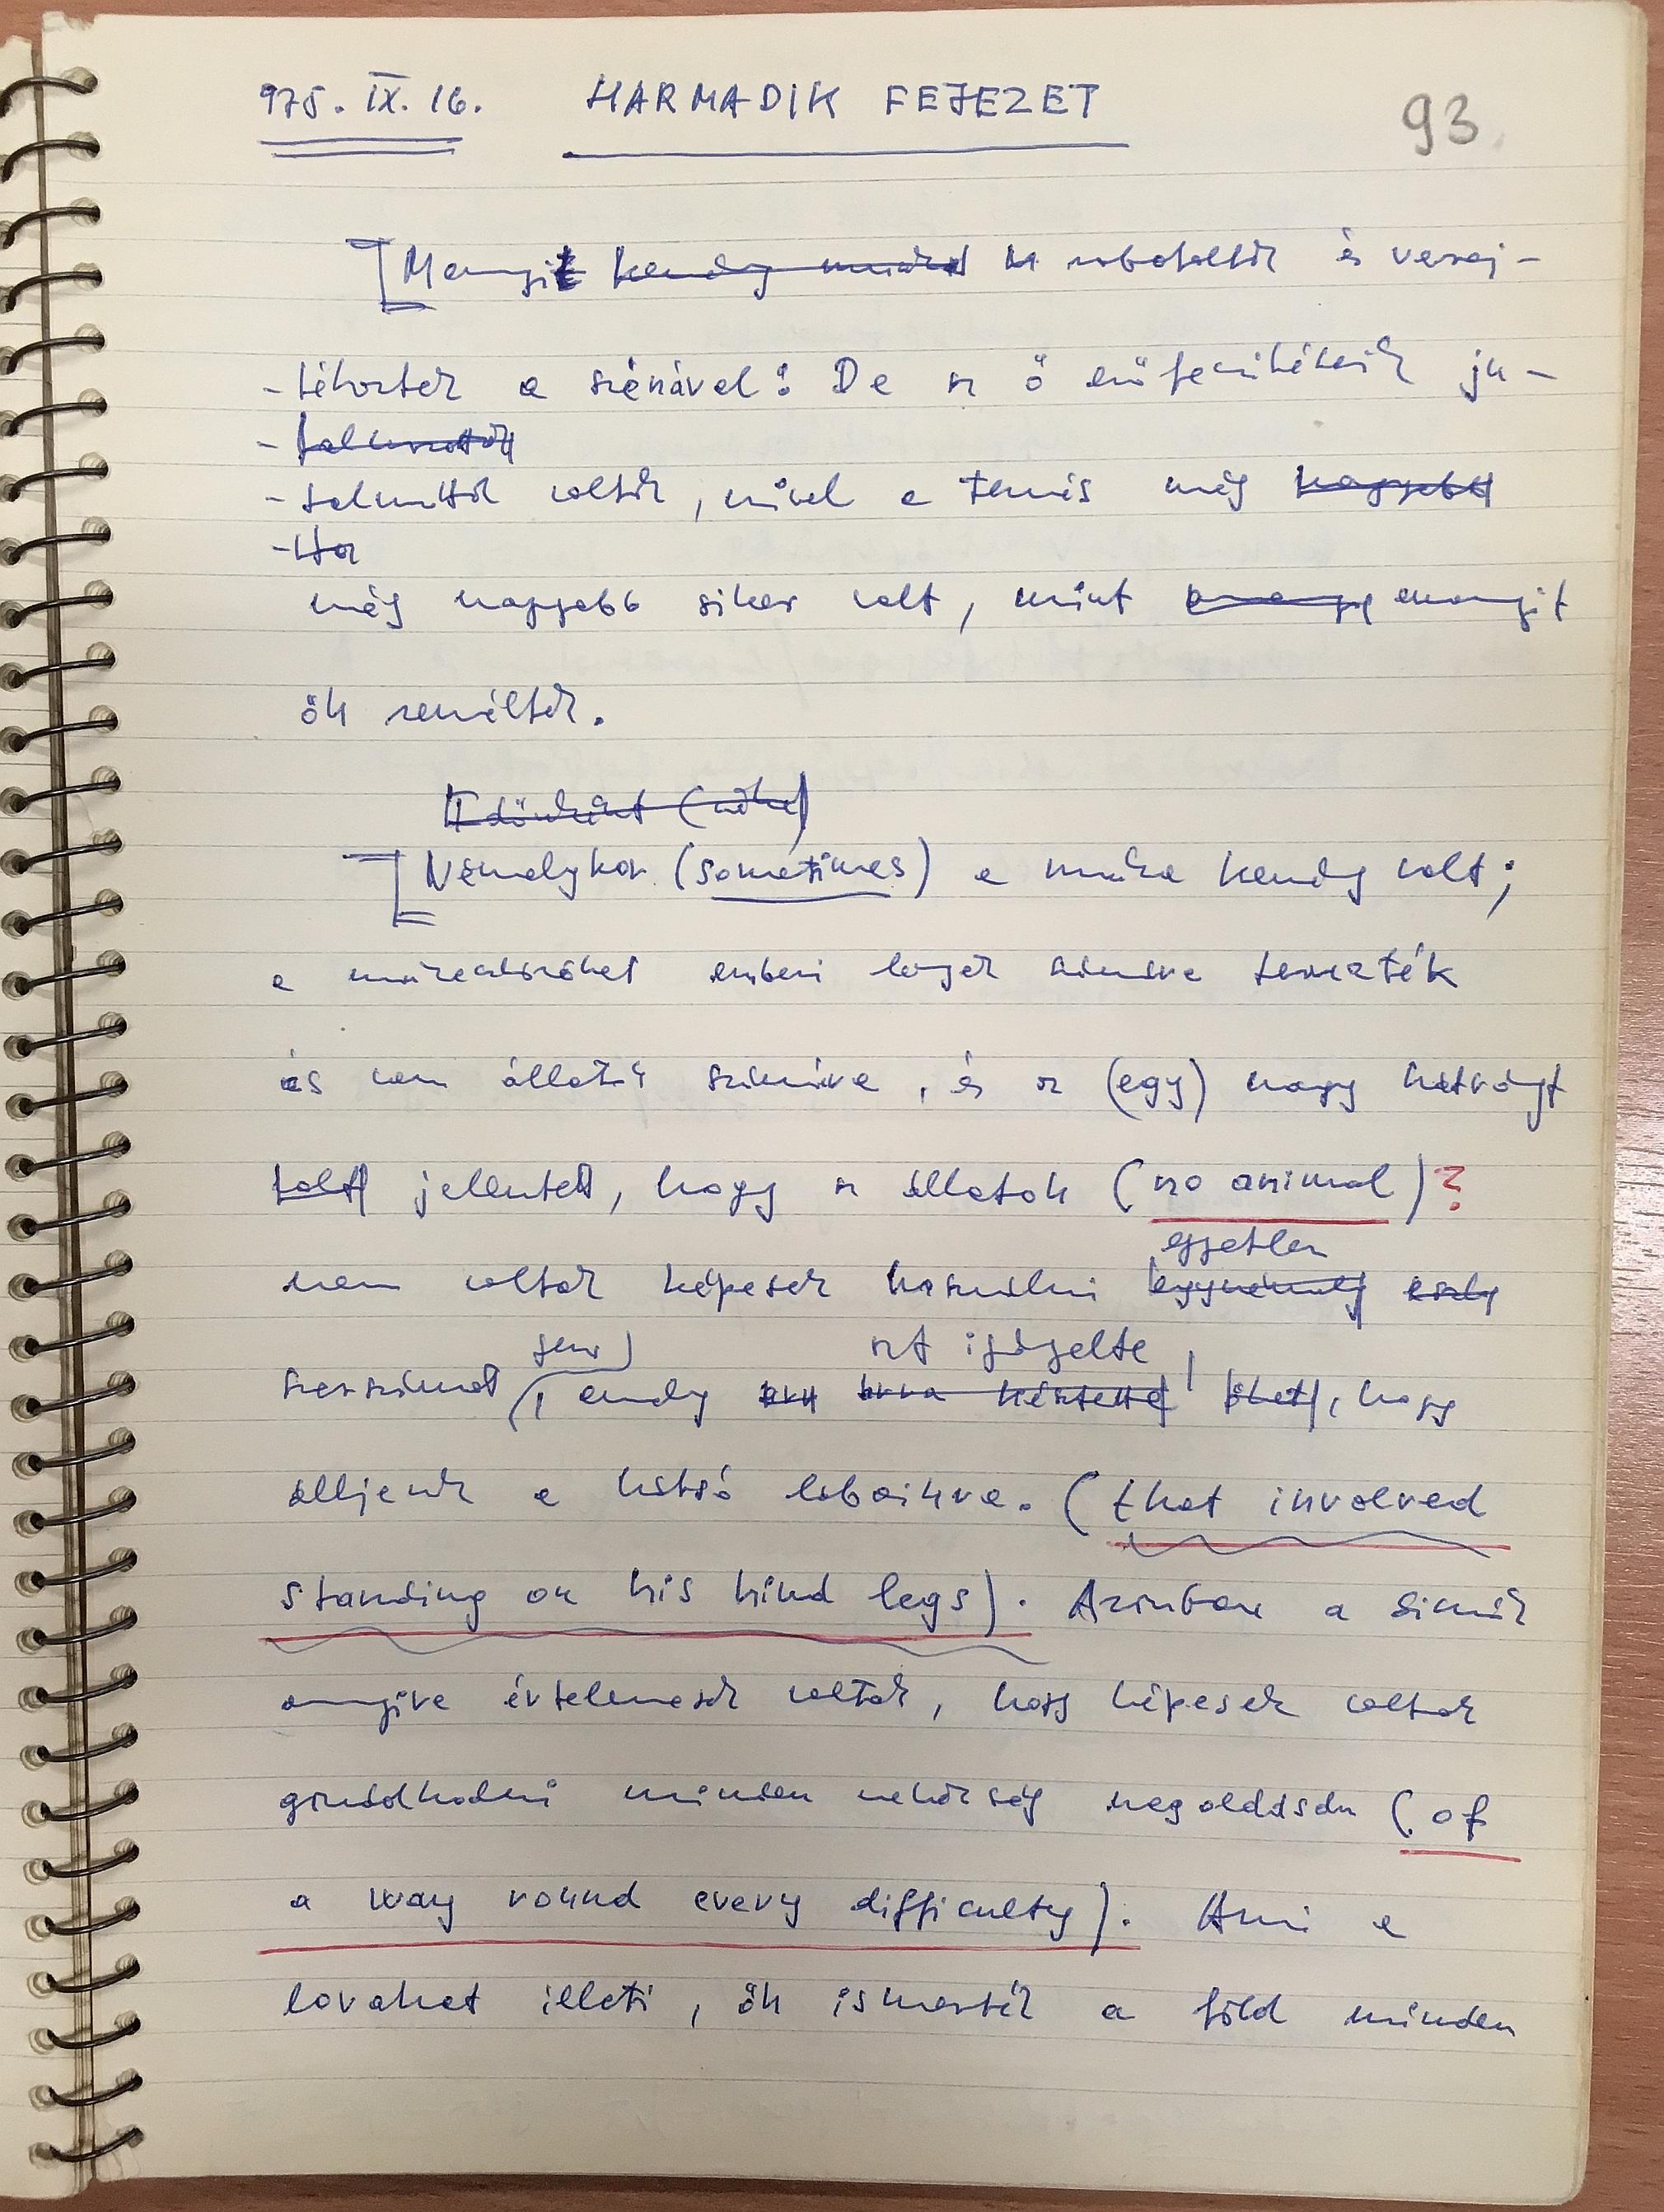 975. IX. 16. HARMADIK FEJEZET 93
és verej-
-tékeztek a szénával! De az ő erőfeszítéseik ju-
-talmazták
-talmuttak voltak, mivel a termés még nagyobb
-tta
még nagyobb siker volt, mint amennyit
ők reméltek.
Időnként (néha)
Némelykor (sometimes) a munka kemény volt;
a munkaeszközöket emberi lények számára tervezték
és nem állatok számára, és az (egy) nagy hátrányt
volt jelentett, hogy az állatok (no animal)?
egyetlen
nem voltak képesek használni egynémely
szerszámot, amely
azt igényelte, hogy
álljenek a hátsó lábaikra. (that involved
standing on his hind legs). Azonban a disznók
annyira értelmesek voltak, hogy képesek voltak
gondolkodni minden nehézség megoldásán (of
a way round every difficulty). Ami a
lovakat illeti, ők ismerték a föld minden